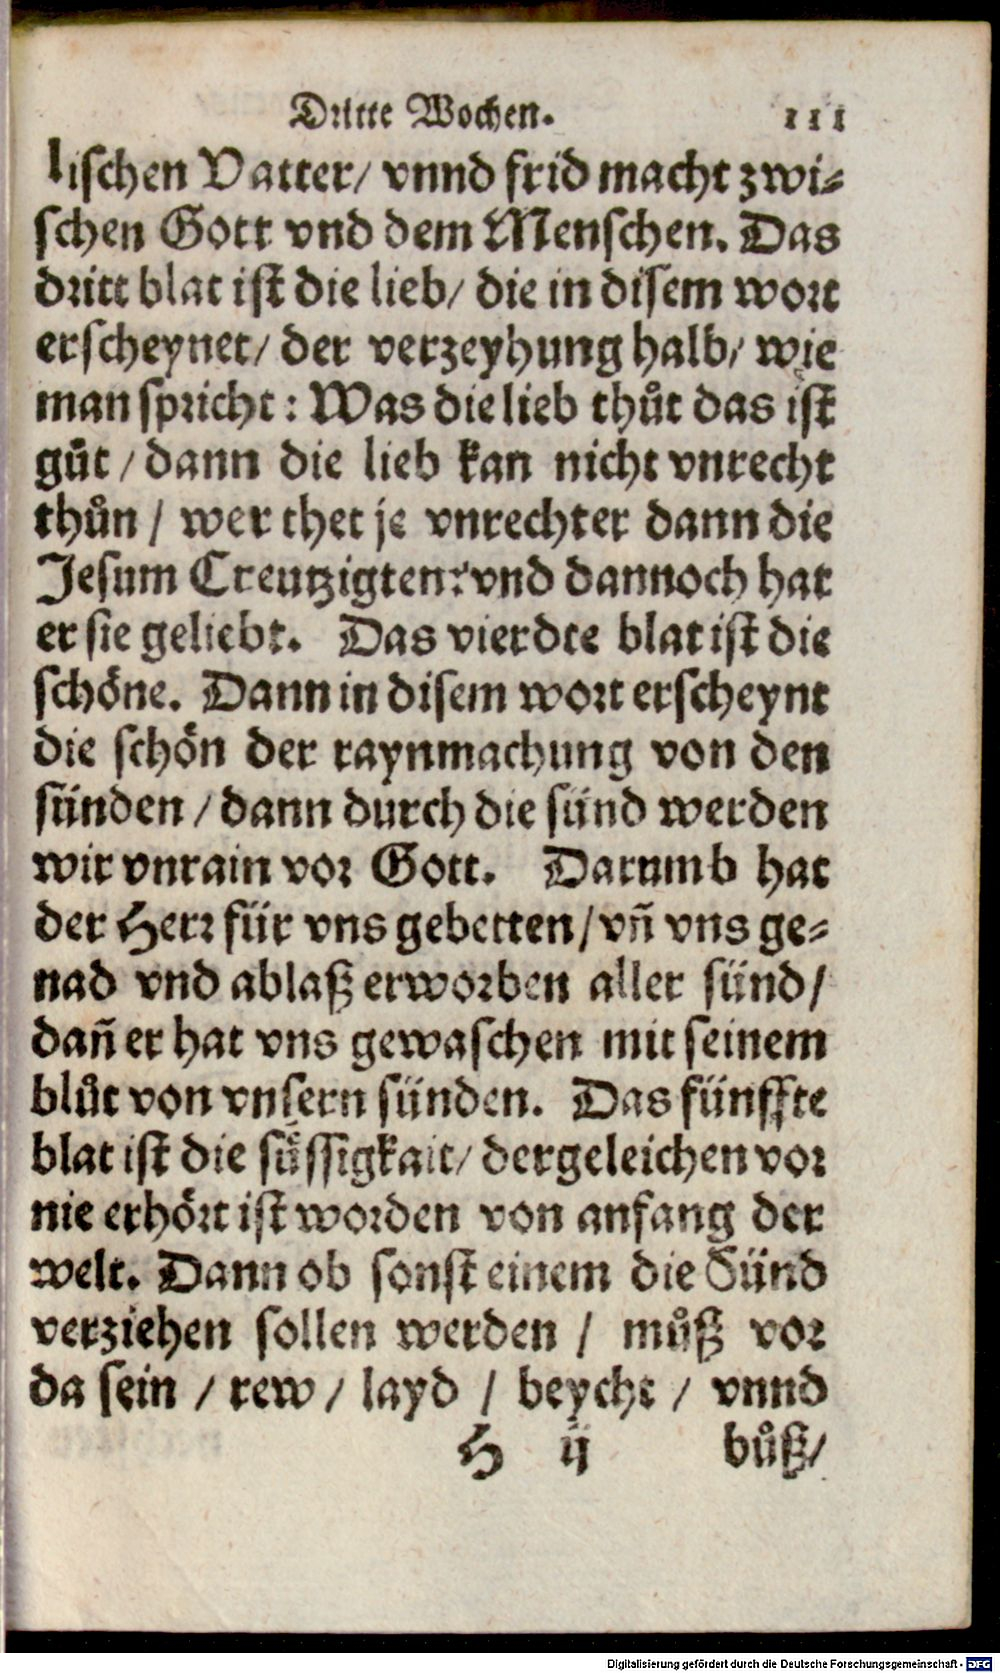 Dritte Wochen. 111
lischen Vatter/ vnnd frid macht zwi-
schen Gott vnd dem Menschen. Das
dritt blat ist die lieb/ die in disem wort
erscheynet/ der verzeyhung halb/ wie
man spricht: Was die lieb thůt das ist
gůt / dann die lieb kan nicht vnrecht
thůn / wer thet je vnrechter dann die
Jesum Creutzigten? vnd dannoch hat
er sie geliebt. Das vierdte blat ist die
schöne. Dann in disem wort erscheynt
die schön der raynmachung von den
sünden / dann durch die sünd werden
wir vnrain vor Gott. Darumb hat
der Herr für vns gebetten / vñ vns ge-
nad vnd ablaß erworben aller sünd/
dañ er hat vns gewaschen mit seinem
blůt von vnsern sünden. Das fünffte
blat ist die süssigkait/ dergeleichen vor
nie erhört ist worden von anfang der
welt. Dann ob sonst einem die Sünd
verziehen sollen werden / můß vor
da sein / rew / layd / beycht / vnnd
H ij bůß/
Digitalisierung gefördert durch die Deutsche Forschungsgemeinschaft - DFG